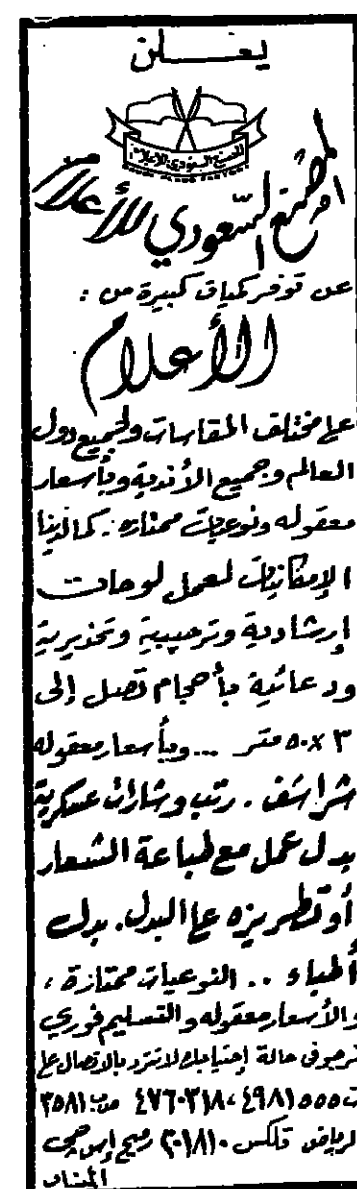 يعلن
المصنع السعودي للأعلام
المصنع السعودي للأعلام
عن توفر كميات كبيرة من :
(الأعلام)
على مختلف المقاسات ولجميع دول
العالم وجميع الأندية وبأسعار
معقوله ونوعيات ممتازه . كما لدينا
الإمكانيات لعمل لوحات
إرشادية وترحيبية وتحذيرية
ودعائية بأحجام تصل إلى
٣ × ٥٠ متر ... وبأسعار معقوله
شراشف . رتب وشارات عسكرية
بدل عمل مع طباعة الشعار
أو تطريزه على البدل . بدل
أطباء .. النوعيات ممتازة ،
والأسعار معقوله والتسليم فوري
نرجو في حالة إحتياجك لا تتردد بالاتصال على
ت ٤٩٨١٥٥٥ ، ٤٧٦٠٣١٨ ص.ب: ٣٥٨١
الرياض تلكس ٢٠١٨١٠